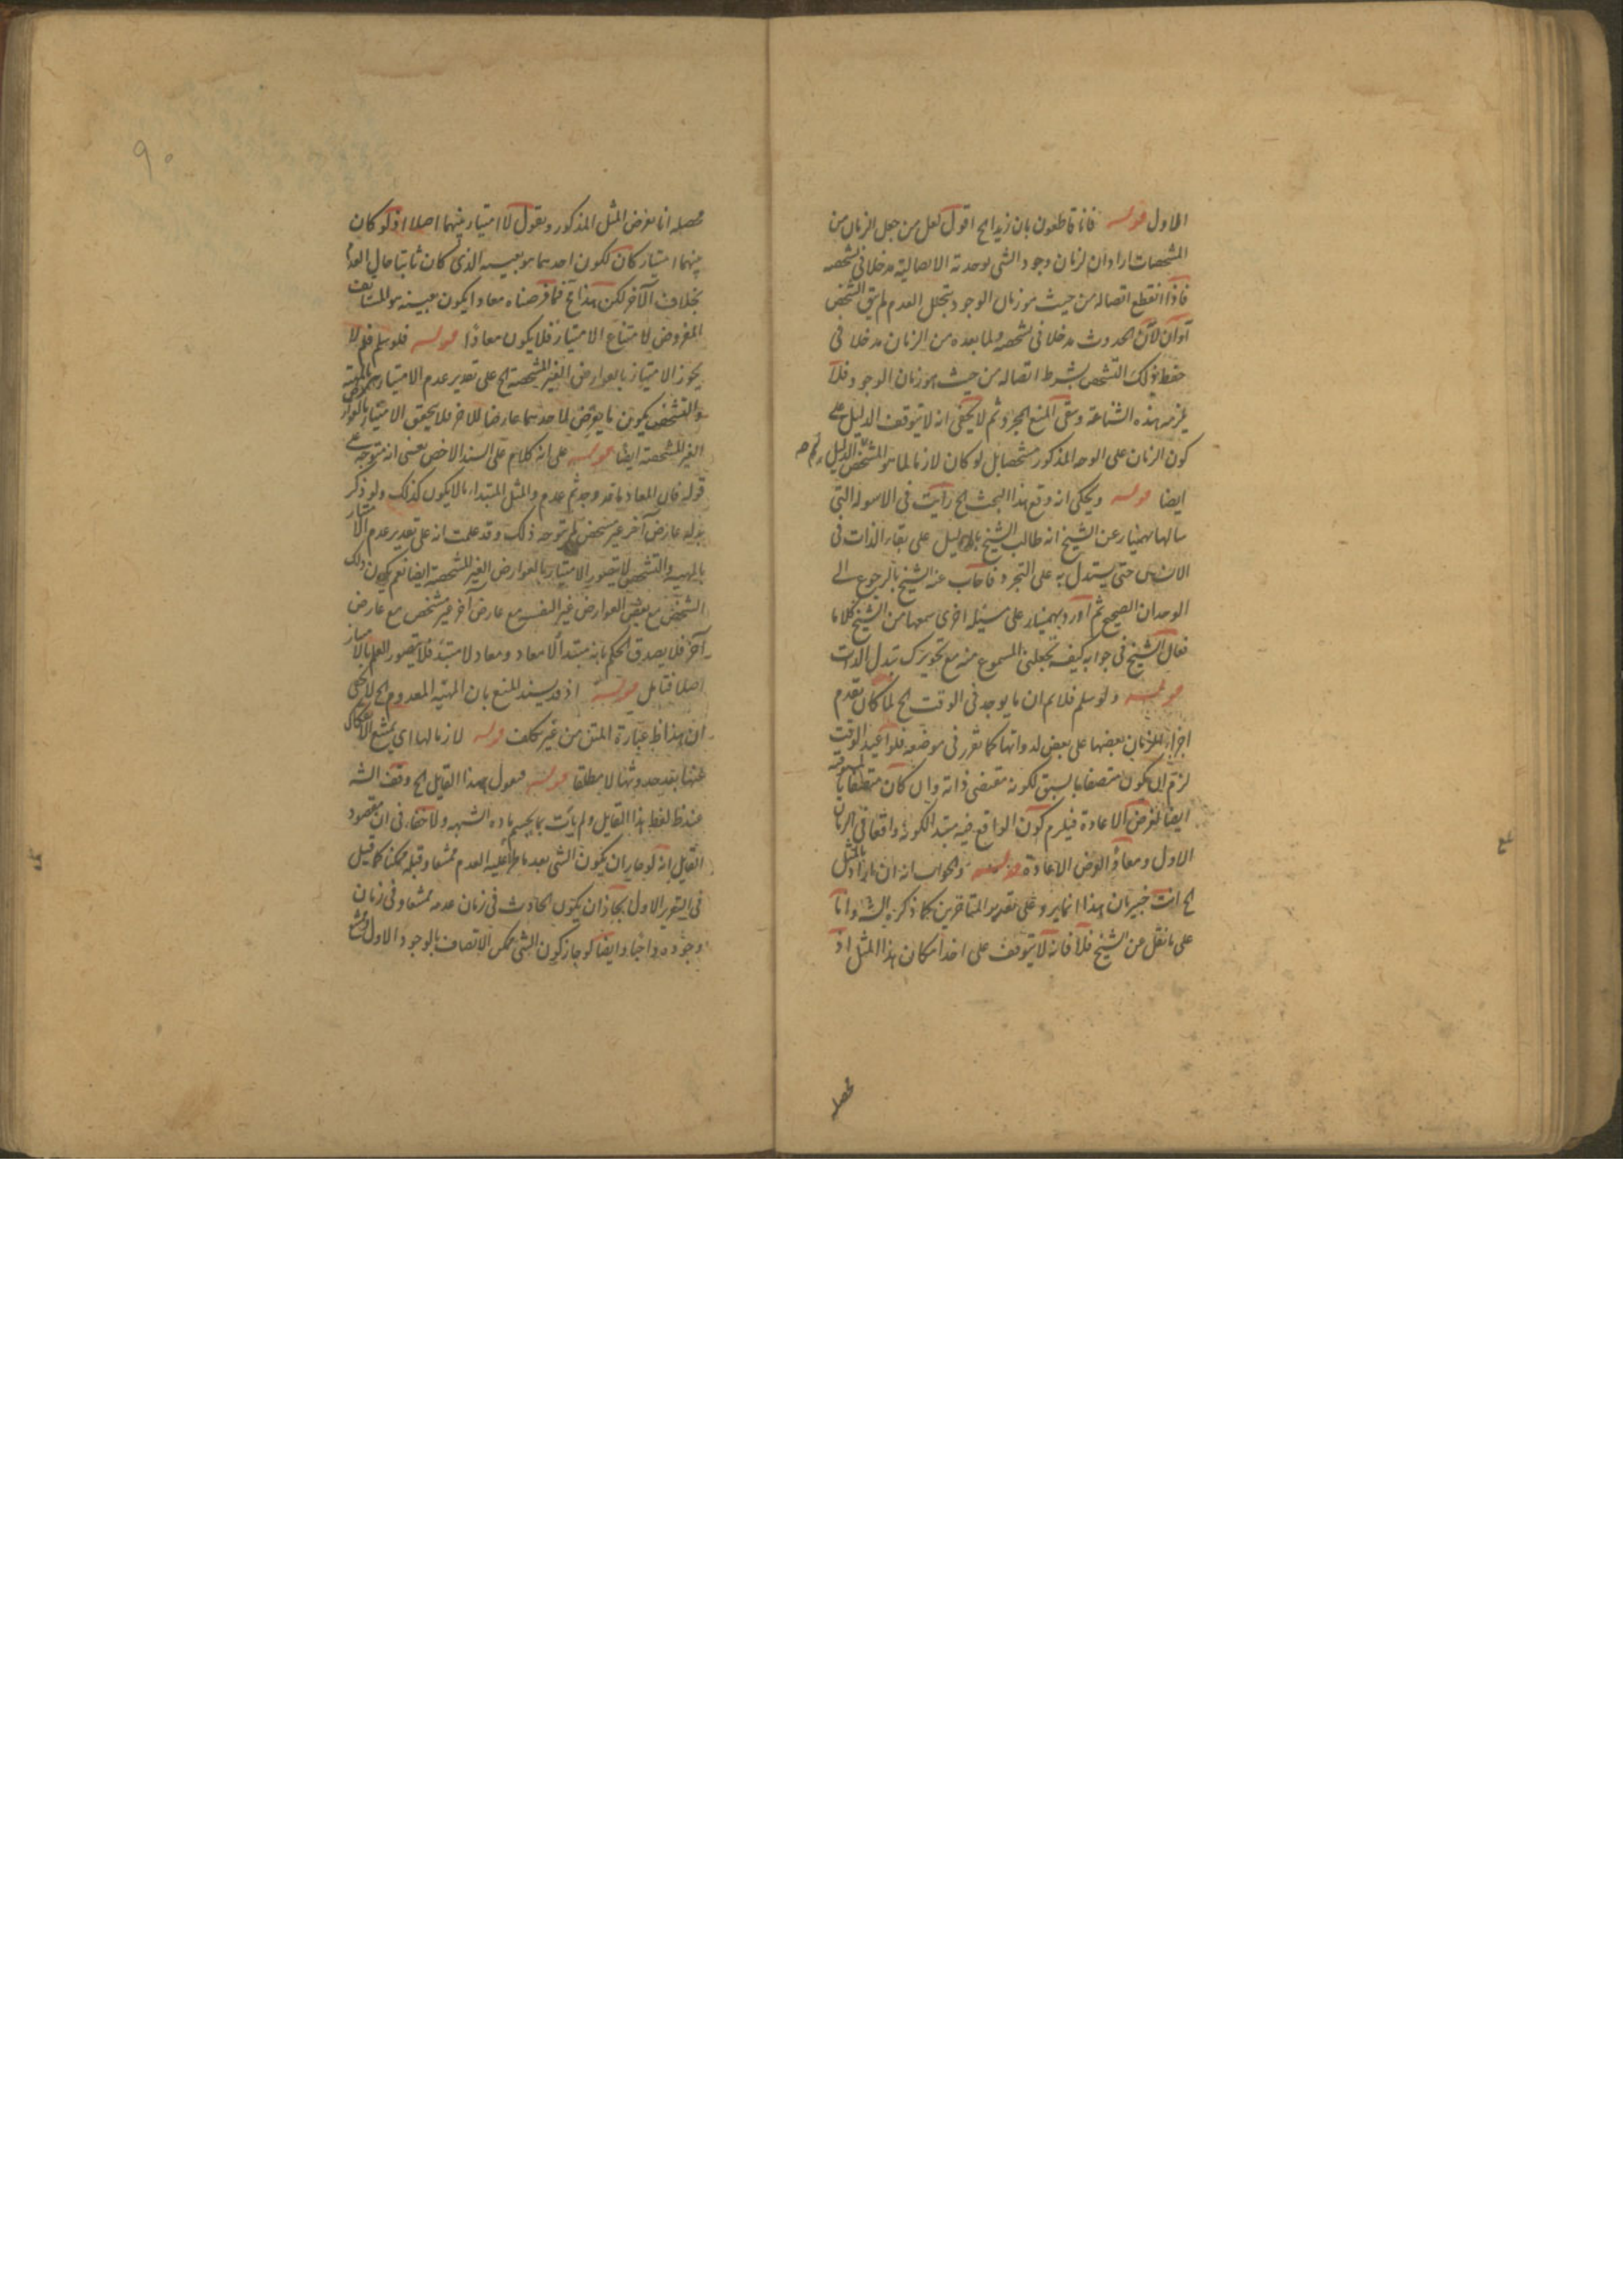 الاول قوله فانا قاطعون بان زيدا الخ اقول لعل من جعل الزمان من
المشخصات اراد ان لزمان وجود الشى بوحدته الاتصالية مدخلا فى تشخصه
فاذا انقطع اتصاله من حيث هو زمان الوجود بتخلل العدم لم يبق الشخص
او ان لآن الحدوث مدخلا فى تشخصه ولما بعده من الزمان مدخلا فى
حفظ ذلك التشخص بشرط اتصاله من حيث هو زمان الوجود فلا
يلزمه هذه الشناعة وبقى المنع المجرد ثم لا يخفى انه لا يتوقف الدليل على
كون الزمان على الوجه المذكور مشخصا بل لو كان لازما لما هو المشخص الدليل
ايضا قوله ويحكى انه وقع هذا البحث الخ رأيت فى الاسولة التى
سالها بهمنيار عن الشيخ انه طالب الشيخ بالدليل على بقاء الذات فى
الانسان حتى يستدل به على التجرد فاجاب عنه الشيخ بالرجوع الى
الوجدان الصحيح ثم اورد بهمنيار على مسئلة اخرى سمعها من الشيخ كلاما
فقال الشيخ فى جوابه كيف تجعلنى المسموع منه مع تجويزك تبدل الذات
قوله ولو سلم فلا نم ان ما يوجد فى الوقت الخ لما كان تقدم
اجزاء الزمان بعضها على بعض لذواتها كما تقرر فى موضعه فلو اعيد الوقت
لزم ان يكون متصفا بالسبق لكونه مقتضى ذاته وان كان متصفا بالمسبوقية
ايضا لفرض الاعادة فيلزم كون الواقع فيه مبتدا لكونه واقعا فى الزمان
الاول ومعادا لفرض الاعادة قوله والجواب انه ان اراد بالمثل
الخ انت خبير بان هذا انما يرد على تقرير المتاخرين كما ذكره الش واما
على ما نقل عن الشيخ فلا فانه لا يتوقف على اخذ امكان هذا المثل اذ
محصله
٩٠
محصله انا نفرض المثل المذكور ونقول لا امتياز بينهما اصلا اذ لو كان
بينهما امتياز كان لكون احدهما هو بعينه الذى كان ثابتا حال العدم
بخلاف الآخر لكن هذا الخ فما فرضناه معادا يكون بعينه هو المستانف
المفروض لامتناع الامتياز فلا يكون معادا قوله فلو سلم فلم لا
يجوز الامتياز بالعوارض الغير المشخصة الخ على تقدير عدم الامتياز بالمهية
والتشخص يكون ما يعرض لاحدهما عارضا للآخر فلا يتحقق الامتياز بالعوارض
الغير المشخصة ايضا قوله على انه كلام على السند الاخص يعنى انه متوجه على
قوله فان المعاد ما قد وجد ثم عدم والمثل المبتداء ما لا يكون كذلك ولو ذكر
بدله عارض آخر غير مشخص لم يتوجه ذلك وقد علمت انه على تقدير عدم الامتياز
بالمهية والتشخص لا يتصور الامتياز بالعوارض الغير المشخصة ايضا نعم يكون ذلك
الشخص مع بعض العوارض غير النفسه مع عارض آخر غير مشخص مع عارض
آخر فلا يصدق الحكم بانه مبتدأ لا معاد ومعاد لا مبتدء فلا يتصور العلم بالامتياز
اصلا فتامل قوله اذ قد يسند المنع بان المهية المعدوم الخ لا يخفى
ان هذا ظ عبارة المتن من غير تكلف قوله لازما لها اى يمتنع الانفكاك
عنها بعد حدوثها لا مطلقا قوله فنقول لهذا القايل الخ وقف الش
عند ظ لفظ هذا القايل ولم يأت بما يحسم مادة الشبهة ولا خفاء فى ان مقصود
القايل انه لو جاز ان يكون الشى بعد ما طرأ عليه العدم ممتنعا وقبله ممكنا كما قيل
فى التقرير الاول لجاز ان يكون الحادث فى زمان عدمه ممتنعا وفى زمان
وجوده واجبا وايضا لو جاز كون الشى ممكن الاتصاف بالوجود الاول